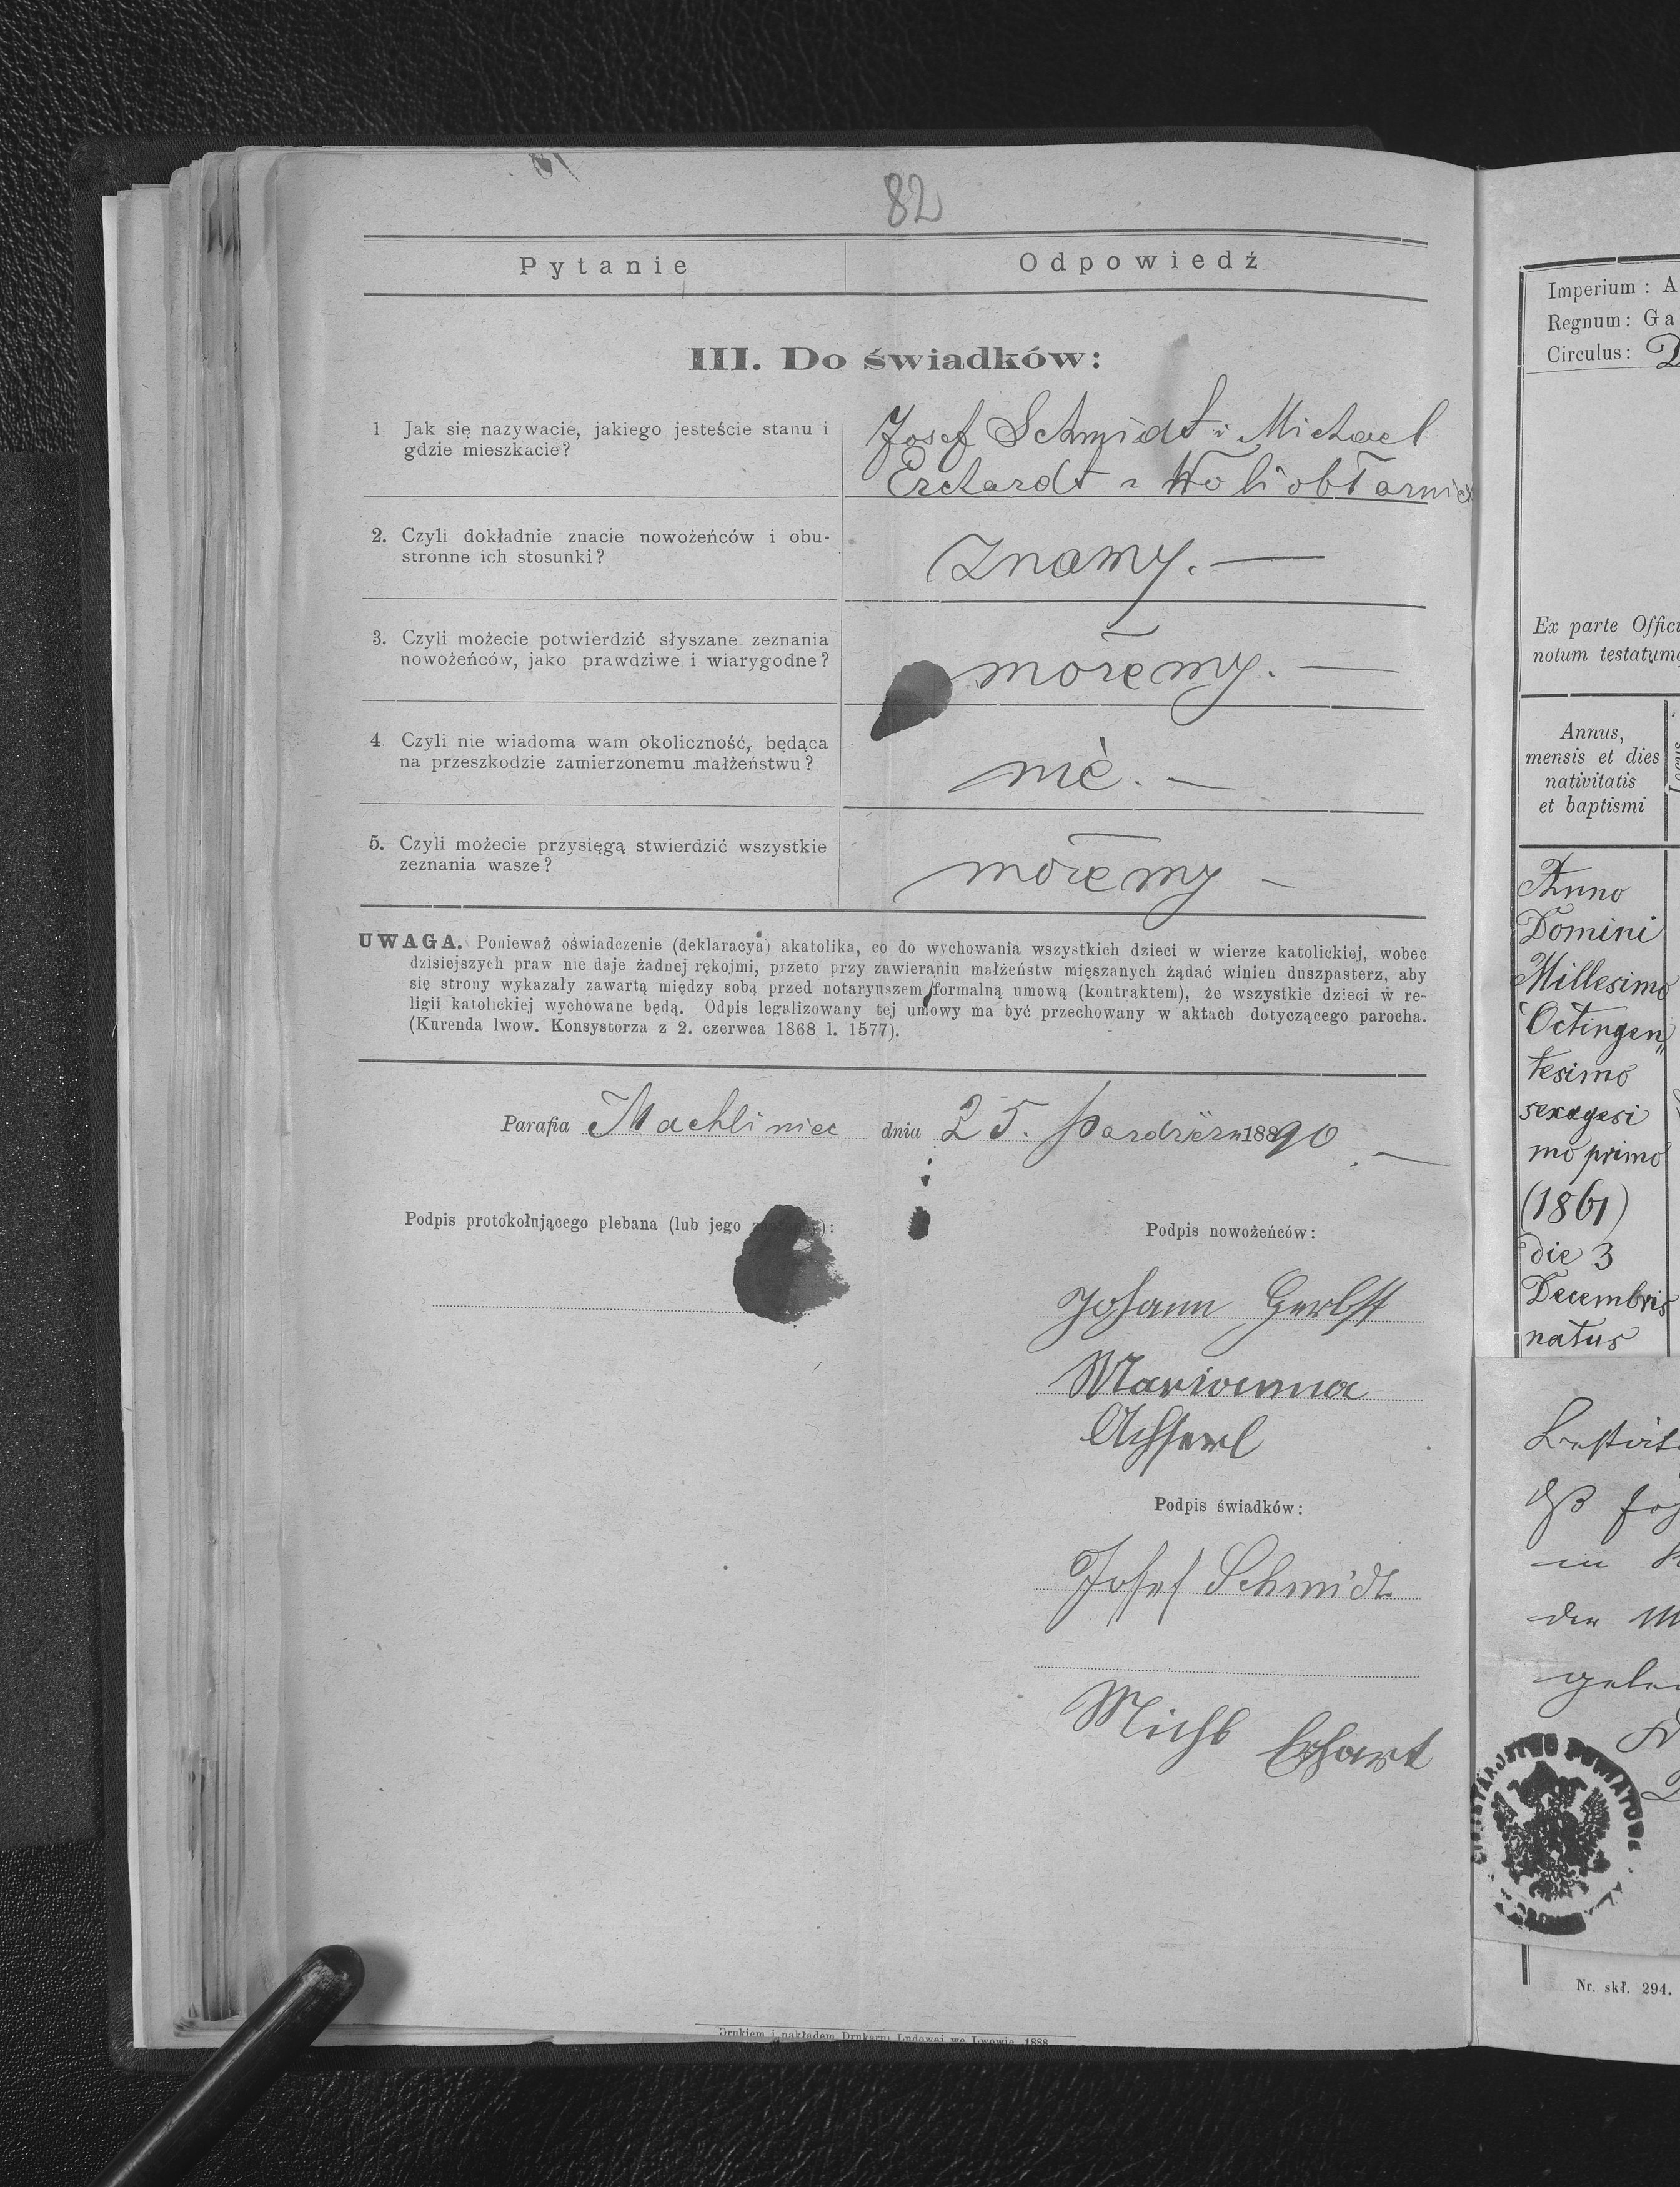 82
Pytanie Odpowiedź
III. Do świadków:
1 Jak się nazywacie, jakiego jesteście stanu i
gdzie mieszkacie?
Josef Schmidt i Michael
Erchardt z Woli obłarnie
2. Czyli dokładnie znacie nowożeńców i obu-
stronne ich stosunki?
znamy. —
3. Czyli możecie potwierdzić słyszane zeznania
nowożeńców, jako prawdziwe i wiarygodne?
możemy. —
4. Czyli nie wiadoma wam okoliczność, będąca
na przeszkodzie zamierzonemu małżeństwu?
nie. —
5. Czyli możecie przysięgą stwierdzić wszystkie
zeznania wasze?
możemy —
UWAGA. Ponieważ oświadczenie (deklaracya) akatolika, co do wychowania wszystkich dzieci w wierze katolickiej, wobec
dzisiejszych praw nie daje żadnej rękojmi, przeto przy zawieraniu małżeństw mięszanych żądać winien duszpasterz, aby
się strony wykazały zawartą między sobą przed notaryuszem formalną umową (kontraktem), że wszystkie dzieci w re-
ligii katolickiej wychowane będą. Odpis legalizowany tej umowy ma być przechowany w aktach dotyczącego parocha.
(Kurenda lwow. Konsystorza z 2. czerwca 1868 l. 1577).
Parafia Machliniec dnia 25. 1890 —
Podpis protokołującego plebana (lub jego
Podpis nowożeńców:
Johann Gerbst
Marianna
Podpis świadków:
Josef Schmidt
Michl Erhart
Drukiem i nakładem Drukarni Ludowej we Lwowie. 1888
Imperium: A
Regnum: Ga
Circulus:
Ex parte Offici
notum testatumq
Annus,
mensis et dies
nativitatis
et baptismi
Anno
Domini
Millesimo
Octingen„
tesimo
sexagesi
mo primo
(1861)
die 3
Decembris
natus
in
der
STAROSTWO POWIATOWE
Nr. skł. 294.